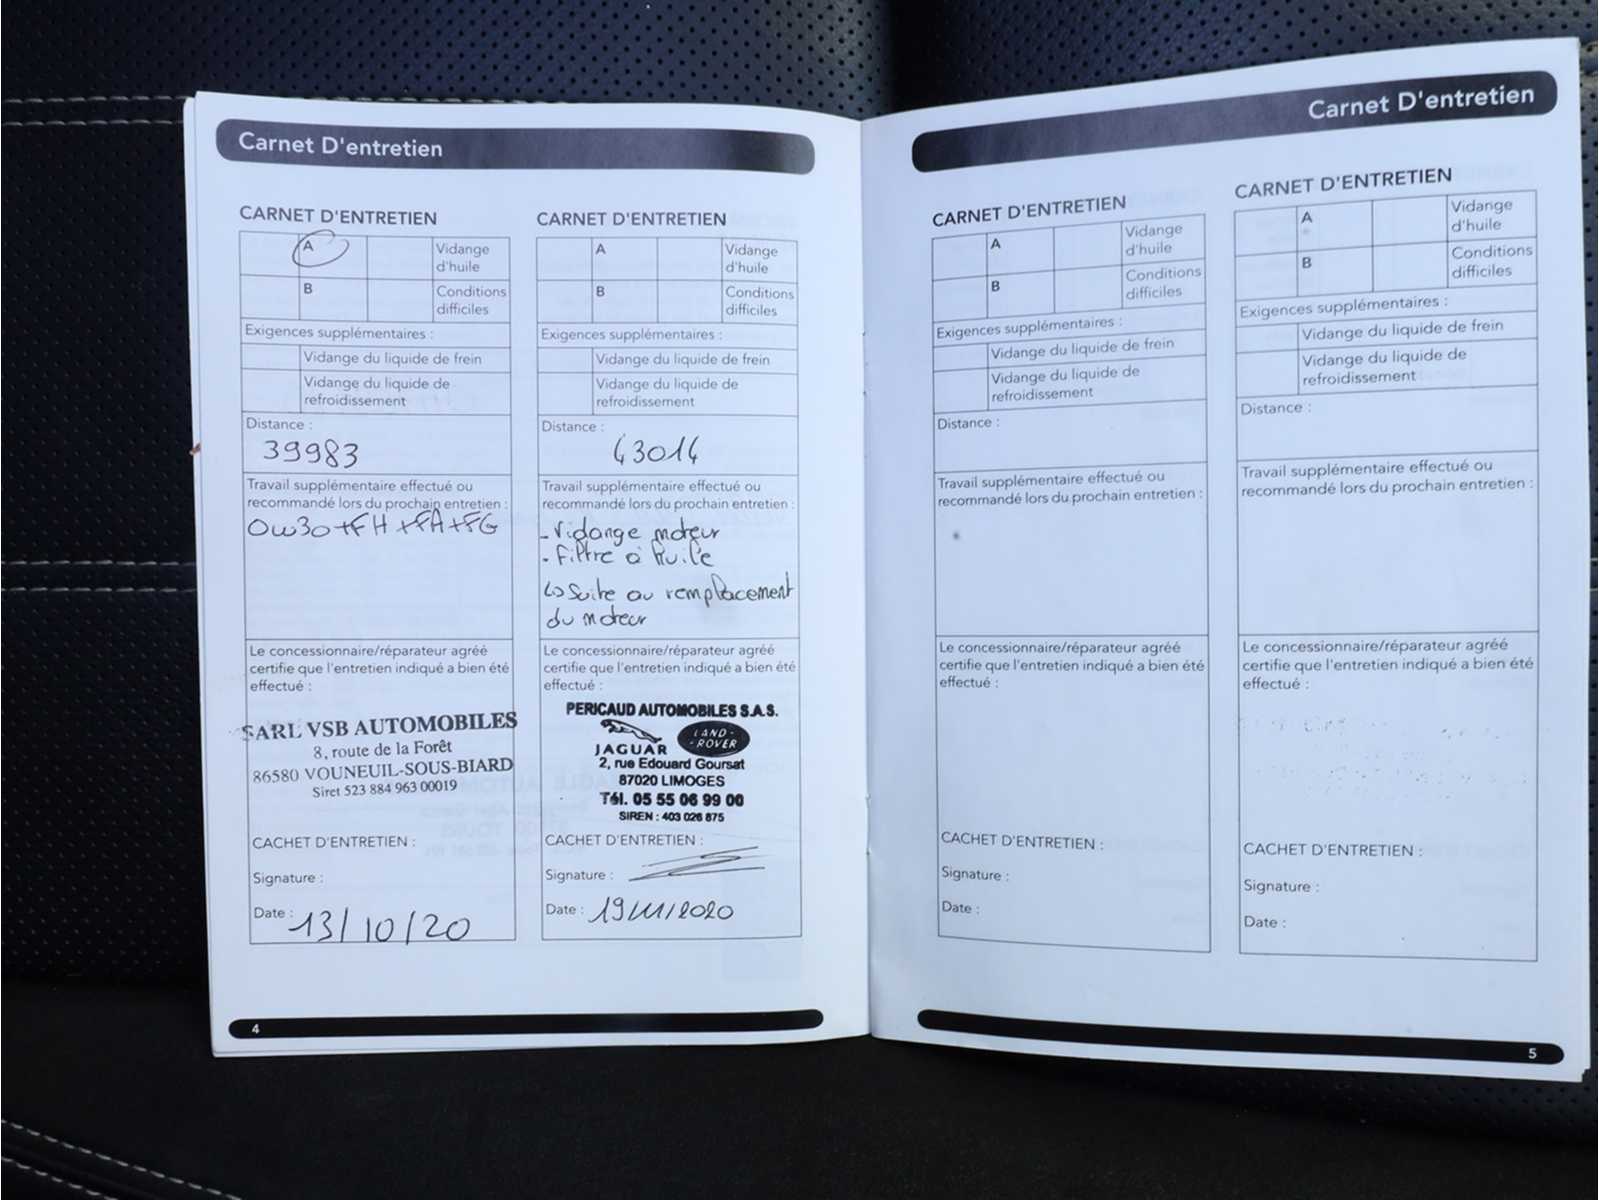 Carnet D'entretien
CARNET D'ENTRETIEN
A
Vidange
d'huile
B
Conditions
difficiles
Exigences supplémentaires :
Vidange du liquide de frein
Vidange du liquide de
refroidissement
Distance :
39983
Travail supplémentaire effectué ou
recommandé lors du prochain entretien :
0W30+FH+FA+FG
Le concessionnaire/réparateur agréé
certifie que l'entretien indiqué a bien été
effectué :
SARL VSB AUTOMOBILES
8, route de la Forêt
86580 VOUNEUIL-SOUS-BIARD
Siret 523 884 963 00019
CACHET D'ENTRETIEN :
Signature :
Date : 13/10/20
CARNET D'ENTRETIEN
A
Vidange
d'huile
B
Conditions
difficiles
Exigences supplémentaires :
Vidange du liquide de frein
Vidange du liquide de
refroidissement
Distance :
43014
Travail supplémentaire effectué ou
recommandé lors du prochain entretien :
- Vidange moteur
- Filtre à huile
↳ Suite au remplacement
du moteur
Le concessionnaire/réparateur agréé
certifie que l'entretien indiqué a bien été
effectué :
PERICAUD AUTOMOBILES S.A.S.
JAGUAR
LAND-
-ROVER
2, rue Edouard Goursat
87020 LIMOGES
Tél. 05 55 06 99 00
SIREN : 403 026 875
CACHET D'ENTRETIEN :
Signature :
Date : 19/11/2020
4
Carnet D'entretien
CARNET D'ENTRETIEN
A
Vidange
d'huile
B
Conditions
difficiles
Exigences supplémentaires :
Vidange du liquide de frein
Vidange du liquide de
refroidissement
Distance :
Travail supplémentaire effectué ou
recommandé lors du prochain entretien :
Le concessionnaire/réparateur agréé
certifie que l'entretien indiqué a bien été
effectué :
CACHET D'ENTRETIEN :
Signature :
Date :
CARNET D'ENTRETIEN
A
Vidange
d'huile
B
Conditions
difficiles
Exigences supplémentaires :
Vidange du liquide de frein
Vidange du liquide de
refroidissement
Distance :
Travail supplémentaire effectué ou
recommandé lors du prochain entretien :
Le concessionnaire/réparateur agréé
certifie que l'entretien indiqué a bien été
effectué :
CACHET D'ENTRETIEN :
Signature :
Date :
5